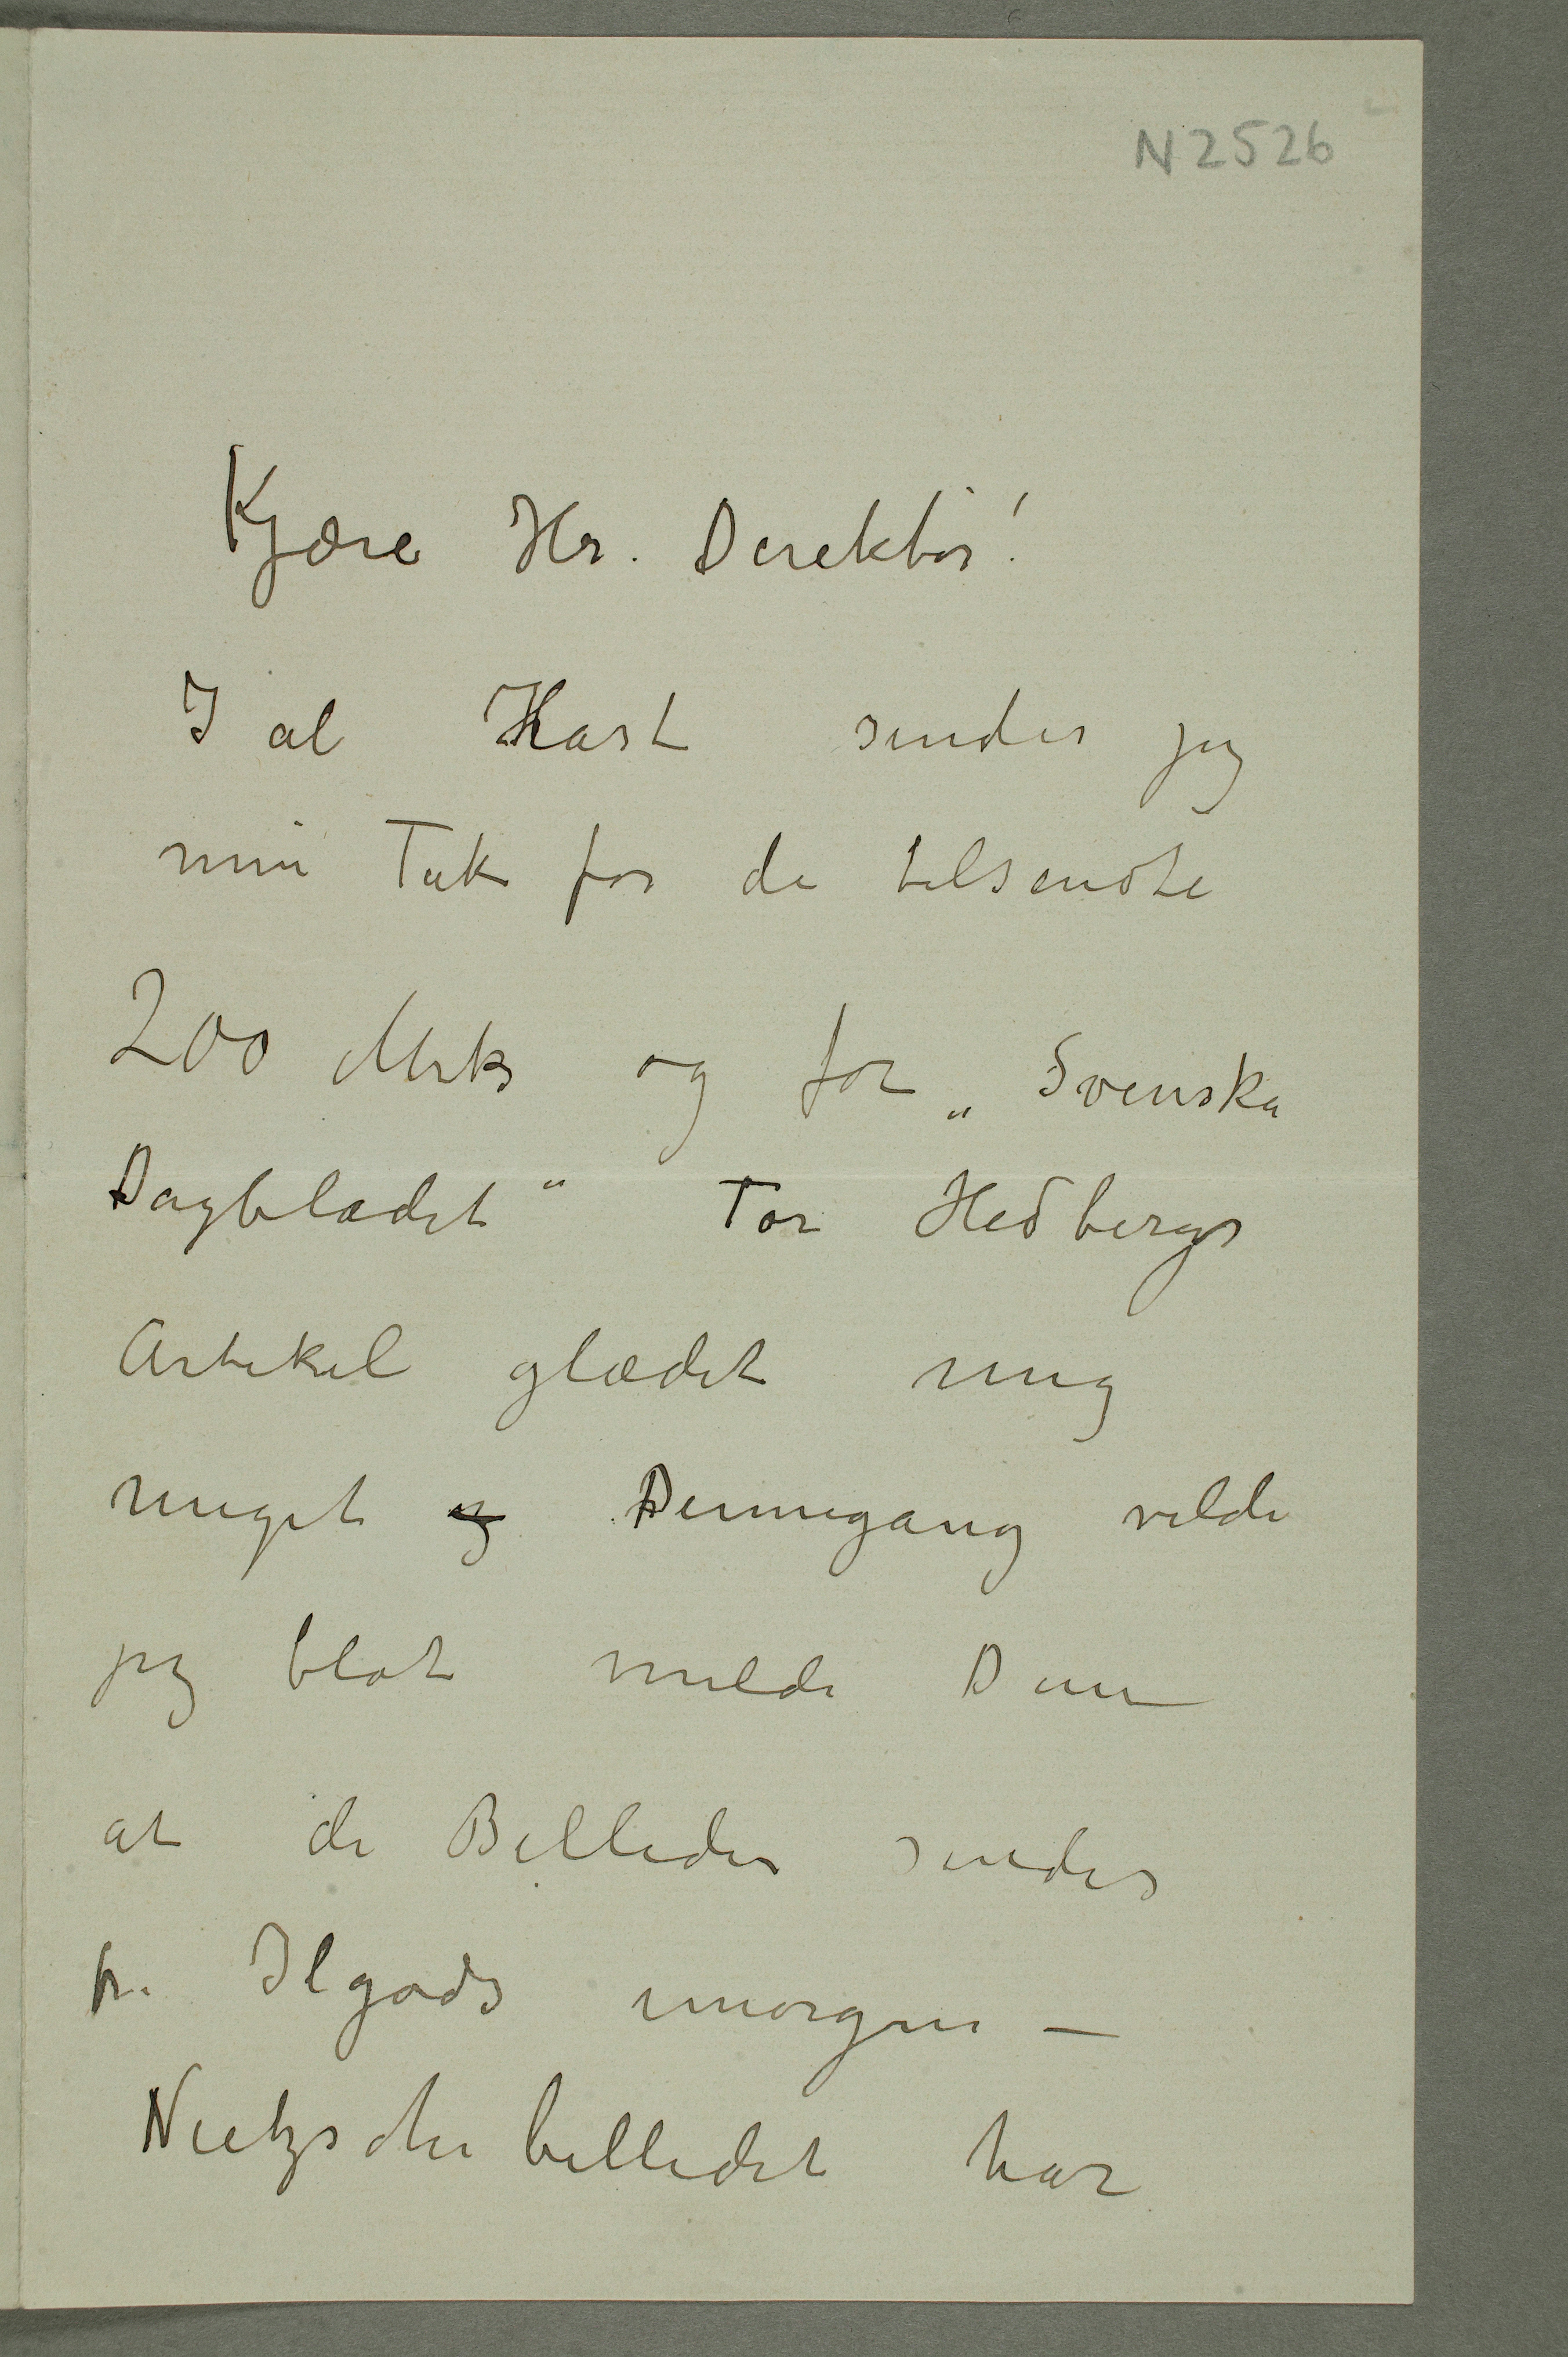 N 2526
Kjære Hr. Direktør!
I al Hast sender jeg
min Tak for de tilsendte
200 Mrks og for „Svenska
Dagbladet“ Tor Hedbergs
Artikel glædet mig
meget og Dennegang vilde
jeg blot melde Dem
at de Billeder sendes
pr. Ilgods imorgen –
Nietzschebilledet har